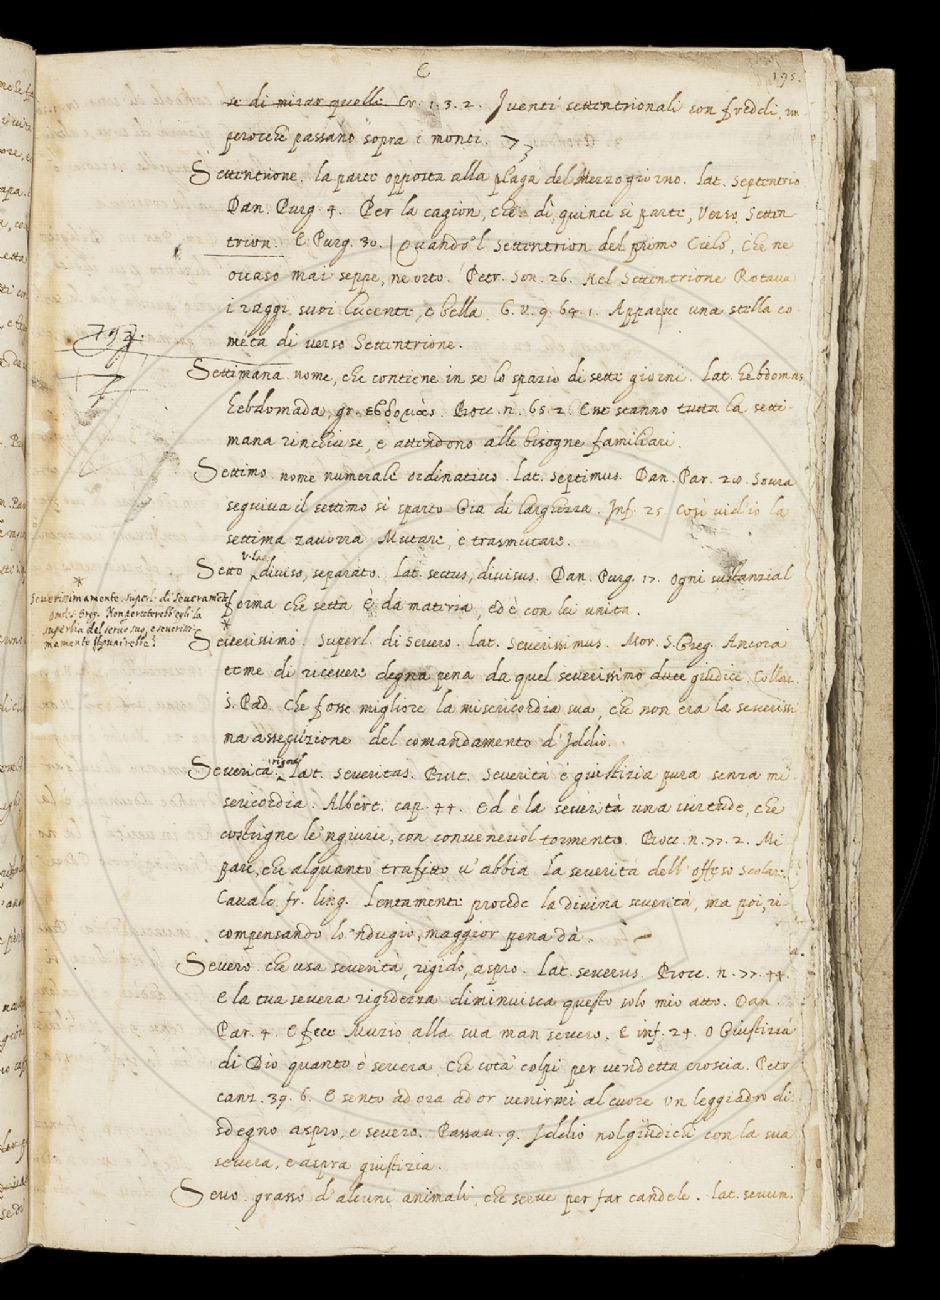 E
195.
se di mirar quelle. Cr. 1. 3. 2. I venti settentrionali son freddi, im
perocchè passano sopra i monti.
Settentrione. la parte opposta alla plaga del Mezzogiorno. lat. septentrio
Dan. Purg. 4. Per la cagion, che di, quinci si parte, Verso Setten
trion. E Purg. 30. Quando 'l settentrion del primo Cielo, che ne
occaso mai seppe, ne orto. Petr. Son. 26. Nel Settentrione Rotava
i raggi suoi lucenti, e bella. G. V. 9. 64. 1. Apparue una stella co
meta di verso Settentrione.
792.
Settimana nome, che contiene in se lo spazio di sette giorni. lat. hebdomas
hebdomada, gr. εβδομὰς. Bocc. n. 65. 2. Esse stanno tutta la setti
mana rinchiuse, e attendono alle bisogne familiari.
Settimo nome numerale ordinativo. lat. septimus. Dan. Par. 20. Sovra
seguiva il settimo sì sparto Gia di larghezza. Inf. 25. Così vid' io la
settima zavorra Mutare, e trasmutare.
Setto diviso, separato. lat. sectus, divisus. Dan. Purg. 17. Ogni sustanzial
forma che setta È da materia, ed è con lei unita.
* Severissimamente. superl. di Severamēte
Omel. Greg. Non percoterebb'egli la
superbia del servo suo, e severissi-
mamente il punirebbe?
Severissimo. Superl. di Severo. lat. Severissimus. Mor. S. Greg. Ancora
teme di ricevere degna pena da quel severissimo dute giudice. Collaz.
S. Pad. Che fosse migliore la misericordia sua, che non era la severissi
ma assecuzione del comandamento d' Iddio.
Severità rigore. lat. severitas. But. Severità è giustizia pura senza mi
sericordia. Albert. cap. 44. Ed è la severità una virtude, che
costrigne le 'ngiurie, con convenevol tormento. Bocc. n. 77. 2. Mi
pare, che alquanto trafitto v' abbia la severità dell' offeso scolare.
Cavalc. fr. ling. Lentamente procede la divina severità, ma poi, ri
compensando lo 'ndugio, maggior pena dà.
Severo. che usa severità, rigido, aspro. lat. severus. Bocc. n. 77. 44.
E la tua severa rigidezza diminuisca questo solo mio atto. Dan.
Par. 4. E fece Muzio alla sua man severo. E inf. 24. O Giustizia
di Dio quanto è severa, Che cota' colpi per vendetta croscia. Petr
canz. 39. 6. E sento ad ora ad or venirmi al cuore Un leggiadro di
sdegno aspro, e severo. Passav. 9. Iddio nol giudichi con la sua
severa, e aspra giustizia.
Sevo grasso d' alcuni animali, che serve per far candele. lat. sevum.